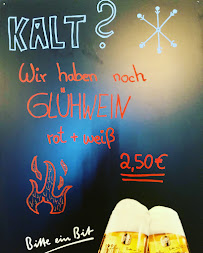 KALT?
Wir haben noch
GLÜHWEIN
rot + weiß
2,50€
Bitte ein Bit